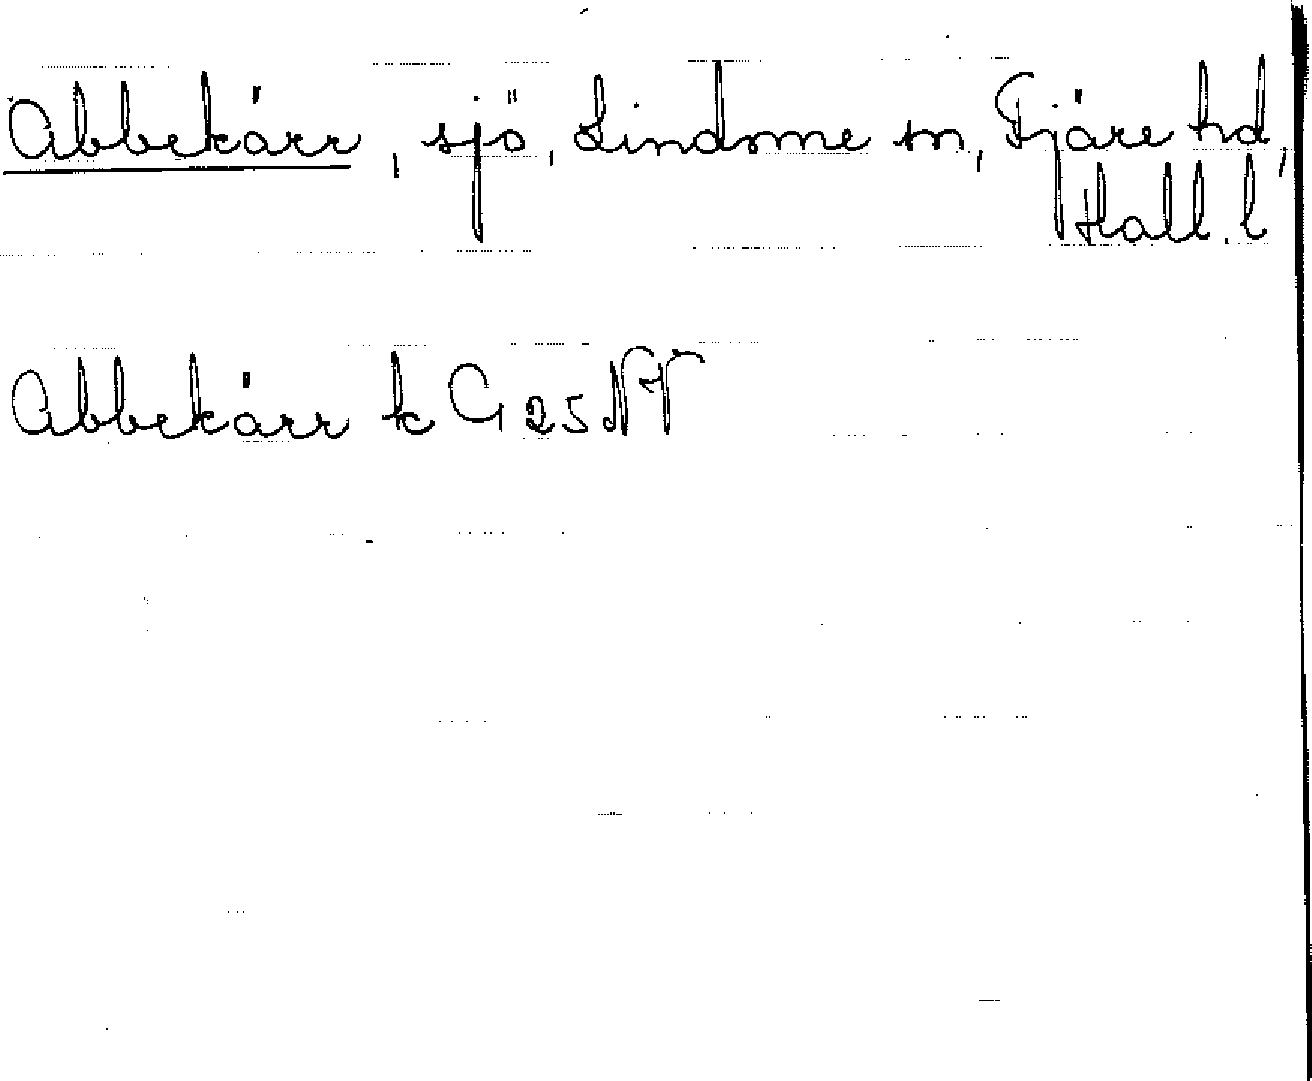 Abbekärr, sjö, Lindome sn, Fjäre hd,
Hall. l
Abbekärr tc G 25 NV